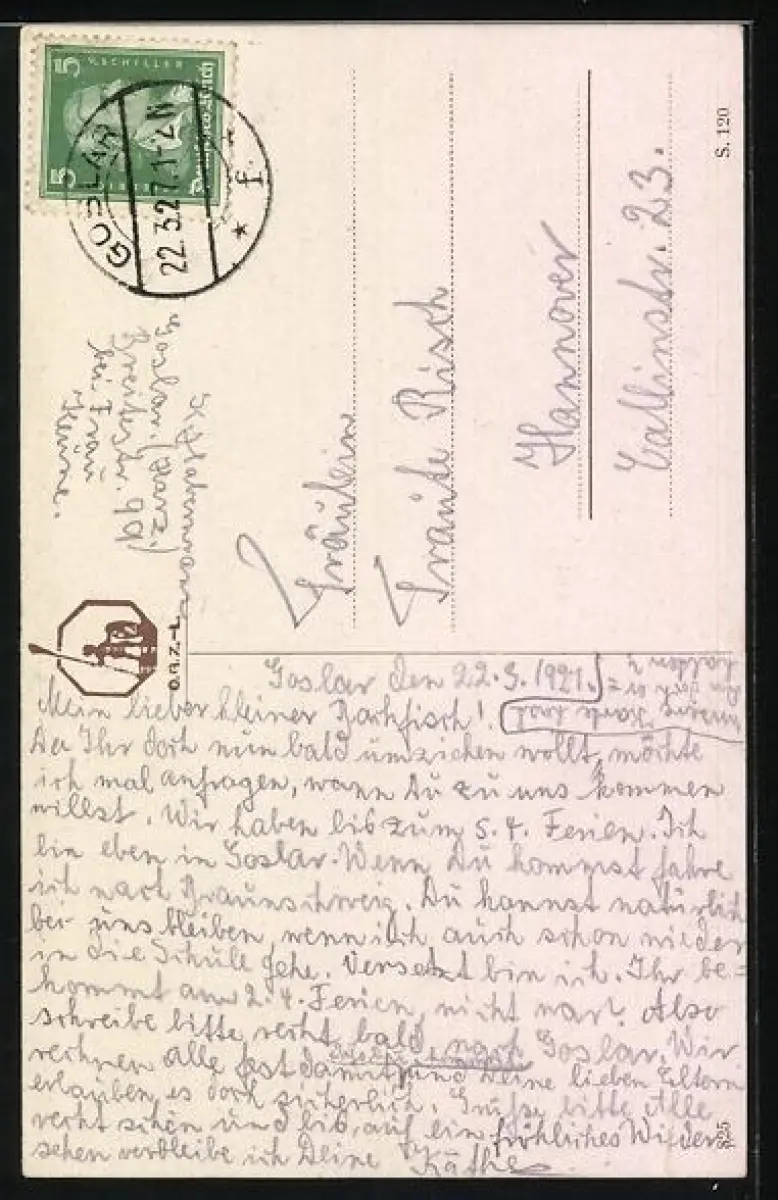 5 F. SCHILLER 5
Deutsches Reich
GOSLAR
22.3.27.1-2N
* f.
S. 120
Fräulein
Traute Risch
Hannover
Callinstr. 23.
Goslar (Harz)
Breitestr. 91
bei Frau
O.R.Z.-L.
Goslar den 22.3.1927.
Mein lieber kleiner Backfisch!
Da Ihr doch nun bald umziehen wollt, möchte
ich mal anfragen, wann Du zu uns kommen
willst. Wir haben bis zum 5.4. Ferien. Ich
bin eben in Goslar. Wenn Du kommst fahre
ich nach Braunschweig. Du kannst natürlich
bei uns bleiben, wenn ich auch schon wieder
in die Schule gehe. Versetzt bin ich. Ihr be=
kommt am 2.4. Ferien, nicht war? Also
schreibe bitte recht bald, nach Goslar. Wir
rechnen alle fest damit, und Deine lieben Eltern
erlauben es doch sicherlich. Grüße bitte Alle
recht schön und bis auf ein fröhliches Wieder
sehen verbleibe ich Deine Käthe
525